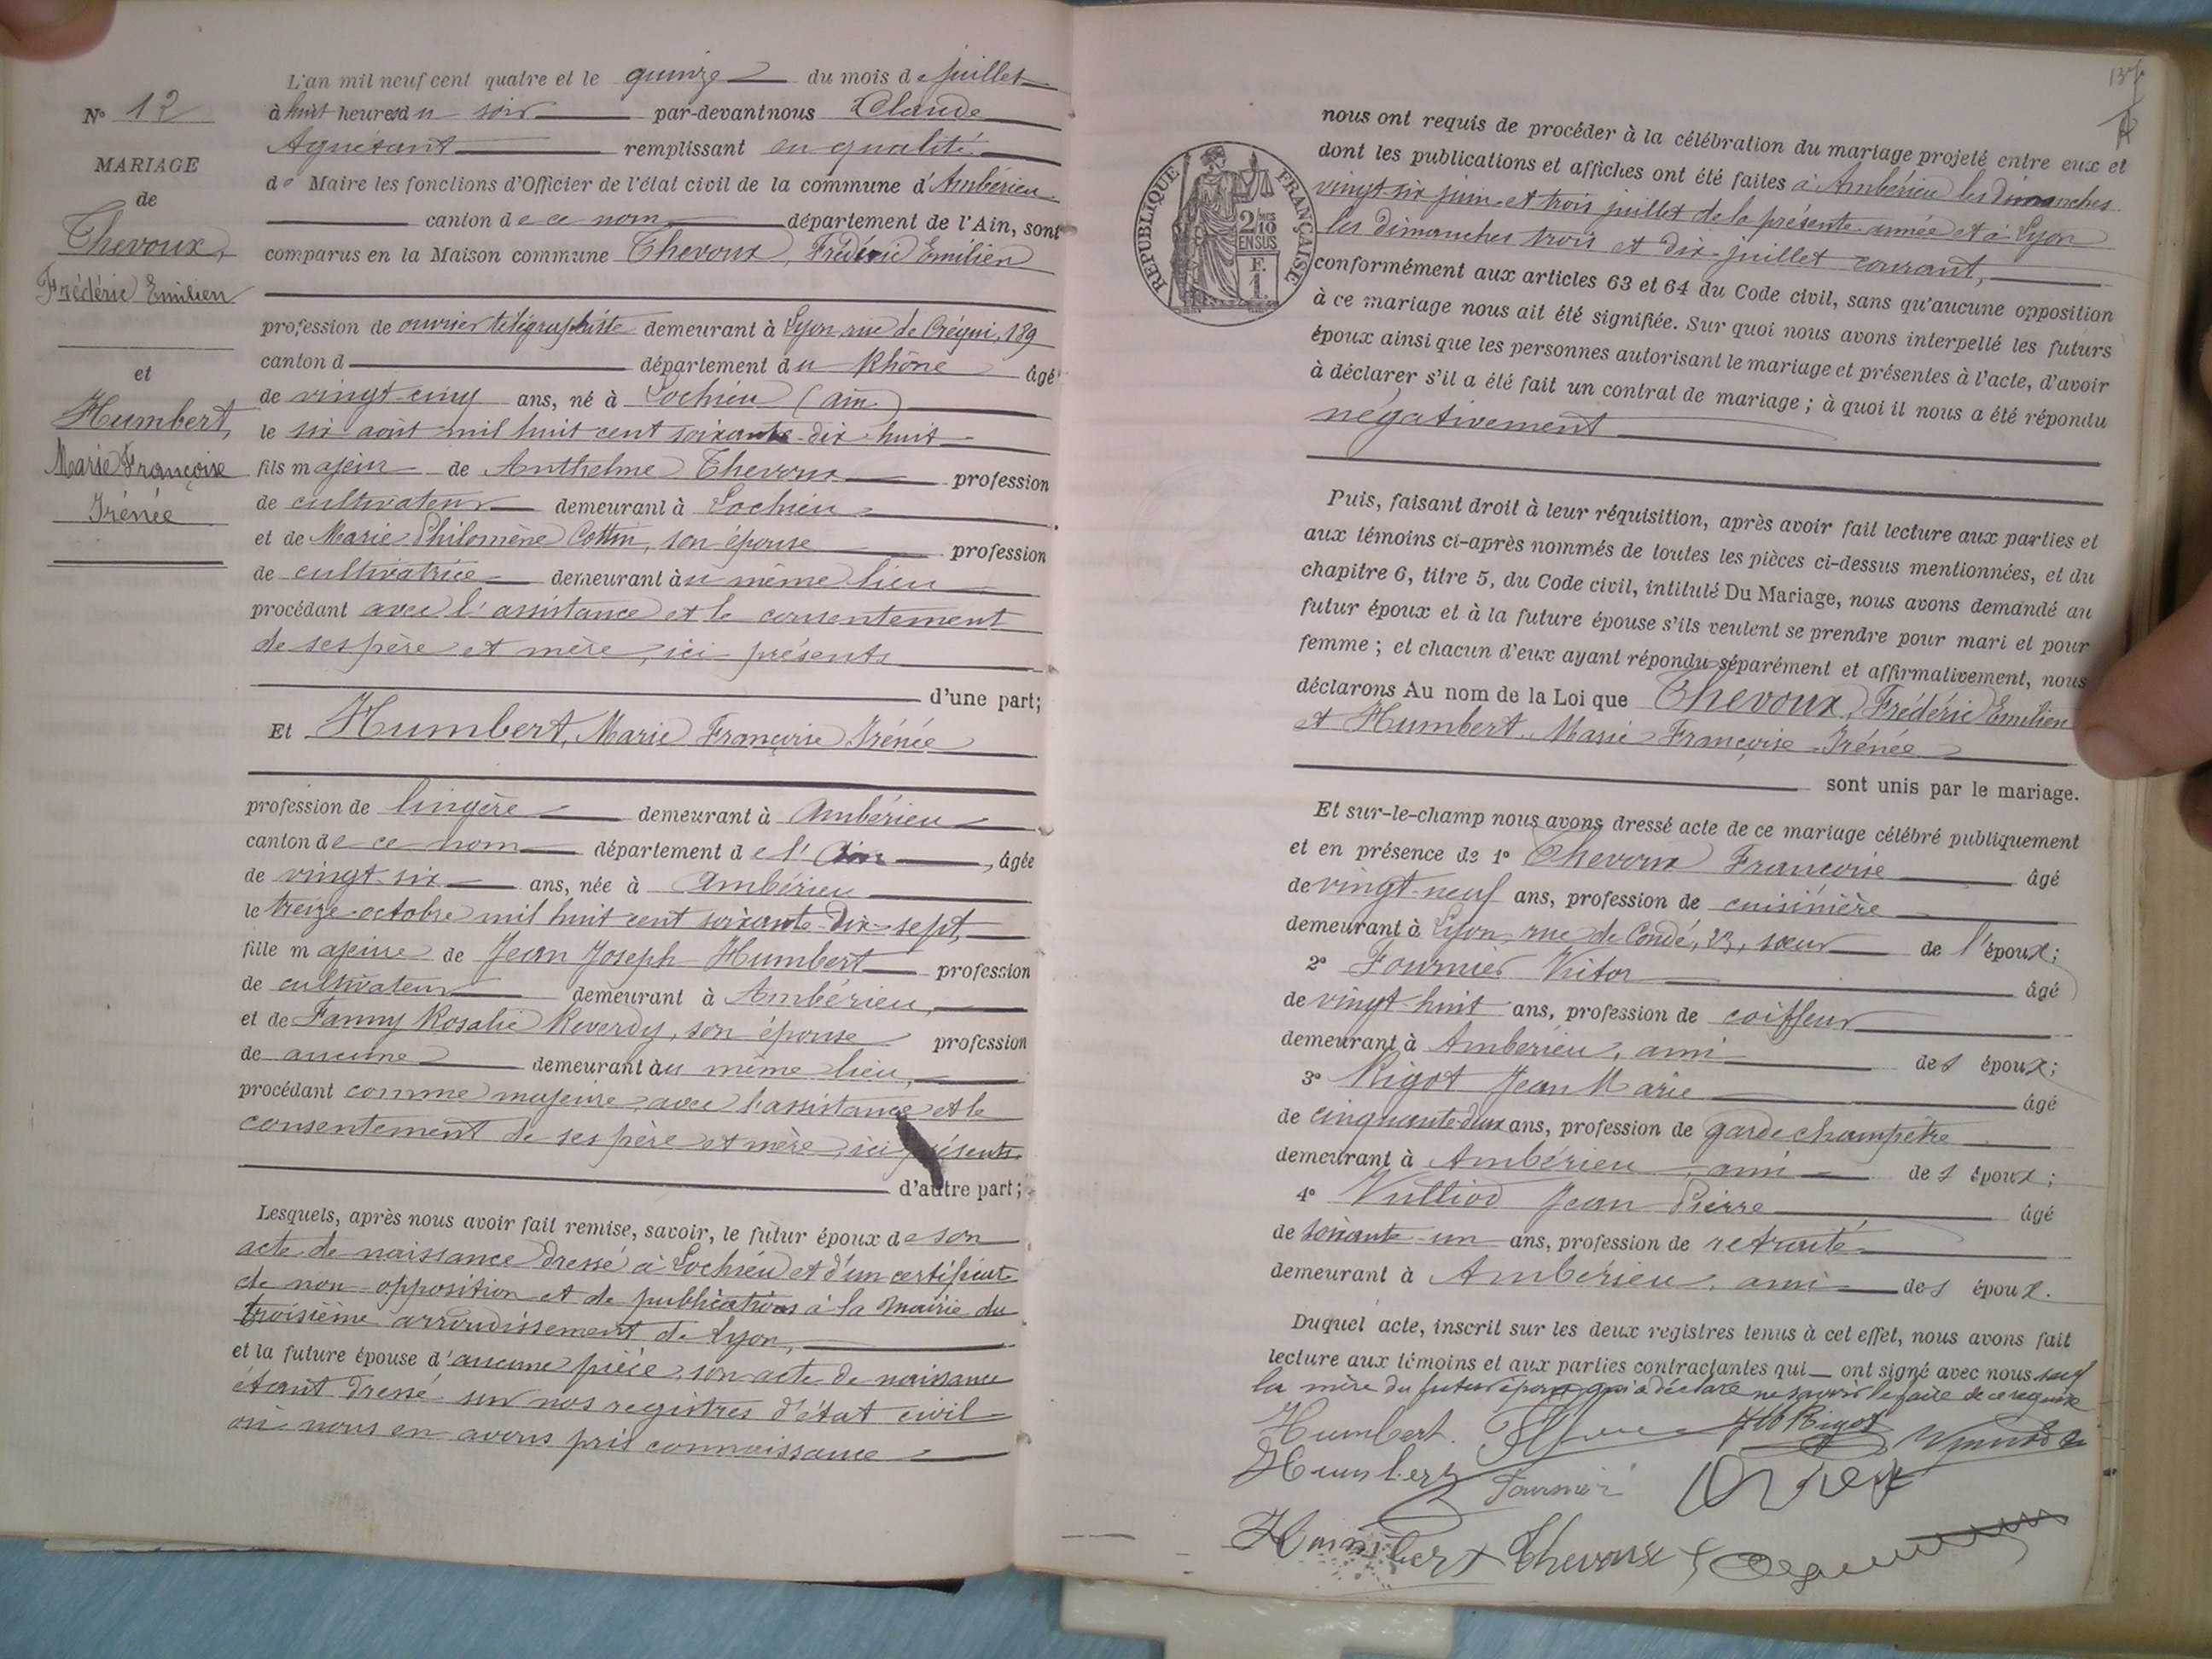 L'an mil neuf cent quatre et le quinze du mois de juillet
à huit heures du soir par-devant nous Claude
Nº 12
Aguétant remplissant en qualité
MARIAGE
de Maire les fonctions d'Officier de l'état civil de la commune d'Ambérieu
de
canton de ce nom département de l'Ain, sont
Thevoux,
comparus en la Maison commune Thevoux, Frédéric Emilien
Frédéric Emilien
profession de ouvrier télégraphiste demeurant à Lyon, rue de Créqui, 189
et
canton d département du Rhône âgé
de vingt-cinq ans, né à Lochieu (Ain)
Humbert,
le six août mil huit cent soixante-dix-huit
Marie Françoise
fils majeur de Anthelme Thevoux profession
Irénée
de cultivateur demeurant à Lochieu
et de Marie Philomène Cottin, son épouse profession
de cultivatrice demeurant au même lieu
procédant avec l'assistance et le consentement
de ses père et mère, ici présents
d'une part;
Et Humbert, Marie Françoise Irénée
profession de lingère demeurant à Ambérieu
canton de ce nom département de l'Ain, âgée
de vingt-six ans, née à Ambérieu
le treize octobre mil huit cent soixante-dix-sept,
fille majeure de Jean Joseph Humbert profession
de cultivateur demeurant à Ambérieu,
et de Fanny Rosalie Reverdy, son épouse profession
de aucune demeurant au même lieu,
procédant comme majeure avec l'assistance et le
consentement de ses père et mère, ici présents
d'autre part;
Lesquels, après nous avoir fait remise, savoir, le futur époux de son
acte de naissance dressé à Lochieu et d'un certificat
de non opposition et de publications à la mairie du
troisième arrondissement de Lyon,
et la future épouse d'aucune pièce, son acte de naissance
étant dressé sur nos registres d'état civil
où nous en avons pris connaissance
137
nous ont requis de procéder à la célébration du mariage projeté entre eux et
dont les publications et affiches ont été faites à Ambérieu les dimanches
vingt six juin et trois juillet de la présente année et à Lyon
les dimanches trois et dix juillet courant,
RÉPUBLIQUE FRANÇAISE
2/10 EN SUS
F. 1
conformément aux articles 63 et 64 du Code civil, sans qu'aucune opposition
à ce mariage nous ait été signifiée. Sur quoi nous avons interpellé les futurs
époux ainsi que les personnes autorisant le mariage et présentes à l'acte, d'avoir
à déclarer s'il a été fait un contrat de mariage; à quoi il nous a été répondu
négativement
Puis, faisant droit à leur réquisition, après avoir fait lecture aux parties et
aux témoins ci-après nommés de toutes les pièces ci-dessus mentionnées, et du
chapitre 6, titre 5, du Code civil, intitulé Du Mariage, nous avons demandé au
futur époux et à la future épouse s'ils veulent se prendre pour mari et pour
femme; et chacun d'eux ayant répondu séparément et affirmativement, nous
déclarons Au nom de la Loi que Thevoux, Frédéric Emilien
et Humbert, Marie Françoise Irénée
sont unis par le mariage.
Et sur-le-champ nous avons dressé acte de ce mariage célébré publiquement
et en présence de 1º Thevoux Françoise âgé
de vingt-neuf ans, profession de cuisinière
demeurant à Lyon, rue de Condé, 23, sœur de l'époux;
2º Fournier Victor âgé
de vingt-huit ans, profession de coiffeur
demeurant à Ambérieu, ami des époux;
3º Rigot Jean Marie âgé
de cinquante-deux ans, profession de garde champêtre
demeurant à Ambérieu, ami des époux;
4º Vulliod Jean Pierre âgé
de soixante-un ans, profession de retraité
demeurant à Ambérieu, ami des époux.
Duquel acte, inscrit sur les deux registres tenus à cet effet, nous avons fait
lecture aux témoins et aux parties contractantes qui ont signé avec nous sauf
la mère du futur époux qui a déclaré ne savoir le faire de ce requise
Humbert. JM Rigot
Humbert Fournier
Humbert Thevoux